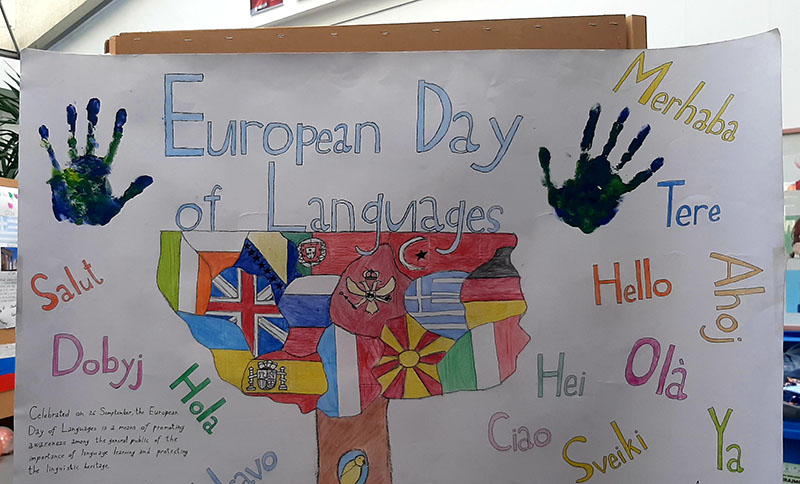 European Day
of Languages
Merhaba
Tere
Salut
Hello
Ahoj
Dobyj
Hola
Hei
Olà
Ciao
Sveiki
Ya
Celebrated on 26 Semptember, the European
Day of Languages is a means of promoting
awareness among the general public of the
importance of language learning and protecting
the linguistic heritage.